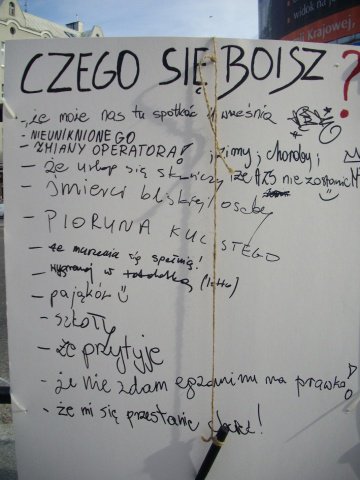 widok na j
ii Krajowej,
CZEGO SIĘ BOISZ ?
- że może nas tu spotkać 11 września
- NIEUNIKNIONEGO
- ZMIANY OPERATORA!
zimy, choroby i
- że urlop się skończy
że AZS nie zostanie M
- śmierci bliskiej osoby
- PIORUNA KULISTEGO
- że marzenia się spełnią!
- wygranej w totolotka (lotto)
- pająków
- szkoły
- że przytyję
- że nie zdam egzaminu na prawko!
- że mi się przestanie chcieć!